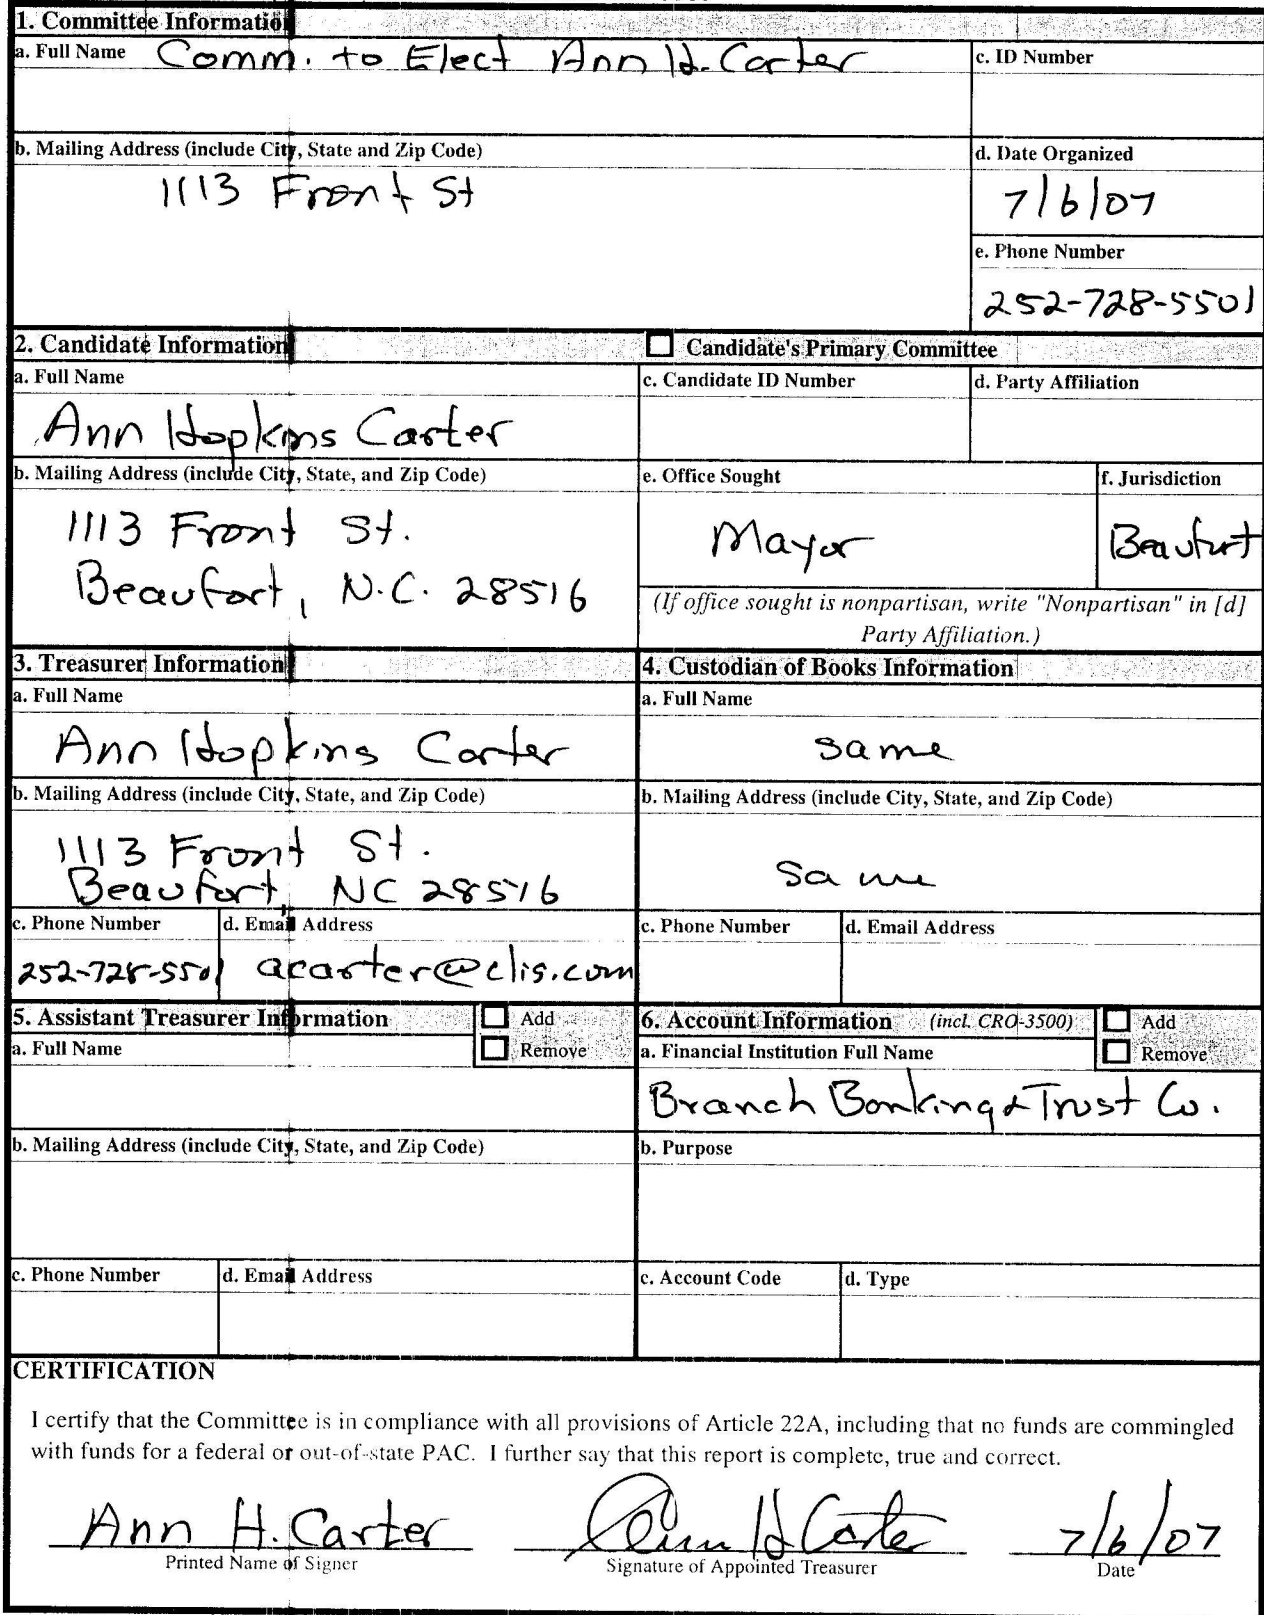 1. Committee Information
a. Full Name Comm. to Elect Ann H. Carter
c. ID Number
b. Mailing Address (include City, State and Zip Code)
1113 Front St
d. Date Organized
7/6/07
e. Phone Number
252-728-5501
2. Candidate Information
Candidate's Primary Committee
a. Full Name
Ann Hopkins Carter
c. Candidate ID Number
d. Party Affiliation
b. Mailing Address (include City, State, and Zip Code)
1113 Front St.
Beaufort, N.C. 28516
e. Office Sought
Mayor
f. Jurisdiction
Beaufort
(If office sought is nonpartisan, write "Nonpartisan" in [d]
Party Affiliation.)
3. Treasurer Information
a. Full Name
Ann Hopkins Carter
b. Mailing Address (include City, State, and Zip Code)
1113 Front St.
Beaufort NC 28516
c. Phone Number
252-728-5501
d. Email Address
acarter@clis.com
4. Custodian of Books Information
a. Full Name
same
b. Mailing Address (include City, State, and Zip Code)
same
c. Phone Number
d. Email Address
5. Assistant Treasurer Information
Add
Remove
a. Full Name
b. Mailing Address (include City, State, and Zip Code)
c. Phone Number
d. Email Address
6. Account Information (incl. CRO-3500)
Add
Remove
a. Financial Institution Full Name
Branch Banking & Trust Co.
b. Purpose
c. Account Code
d. Type
CERTIFICATION
I certify that the Committee is in compliance with all provisions of Article 22A, including that no funds are commingled
with funds for a federal or out-of-state PAC. I further say that this report is complete, true and correct.
Ann H. Carter
Printed Name of Signer
Ann H Carter
Signature of Appointed Treasurer
7/6/07
Date